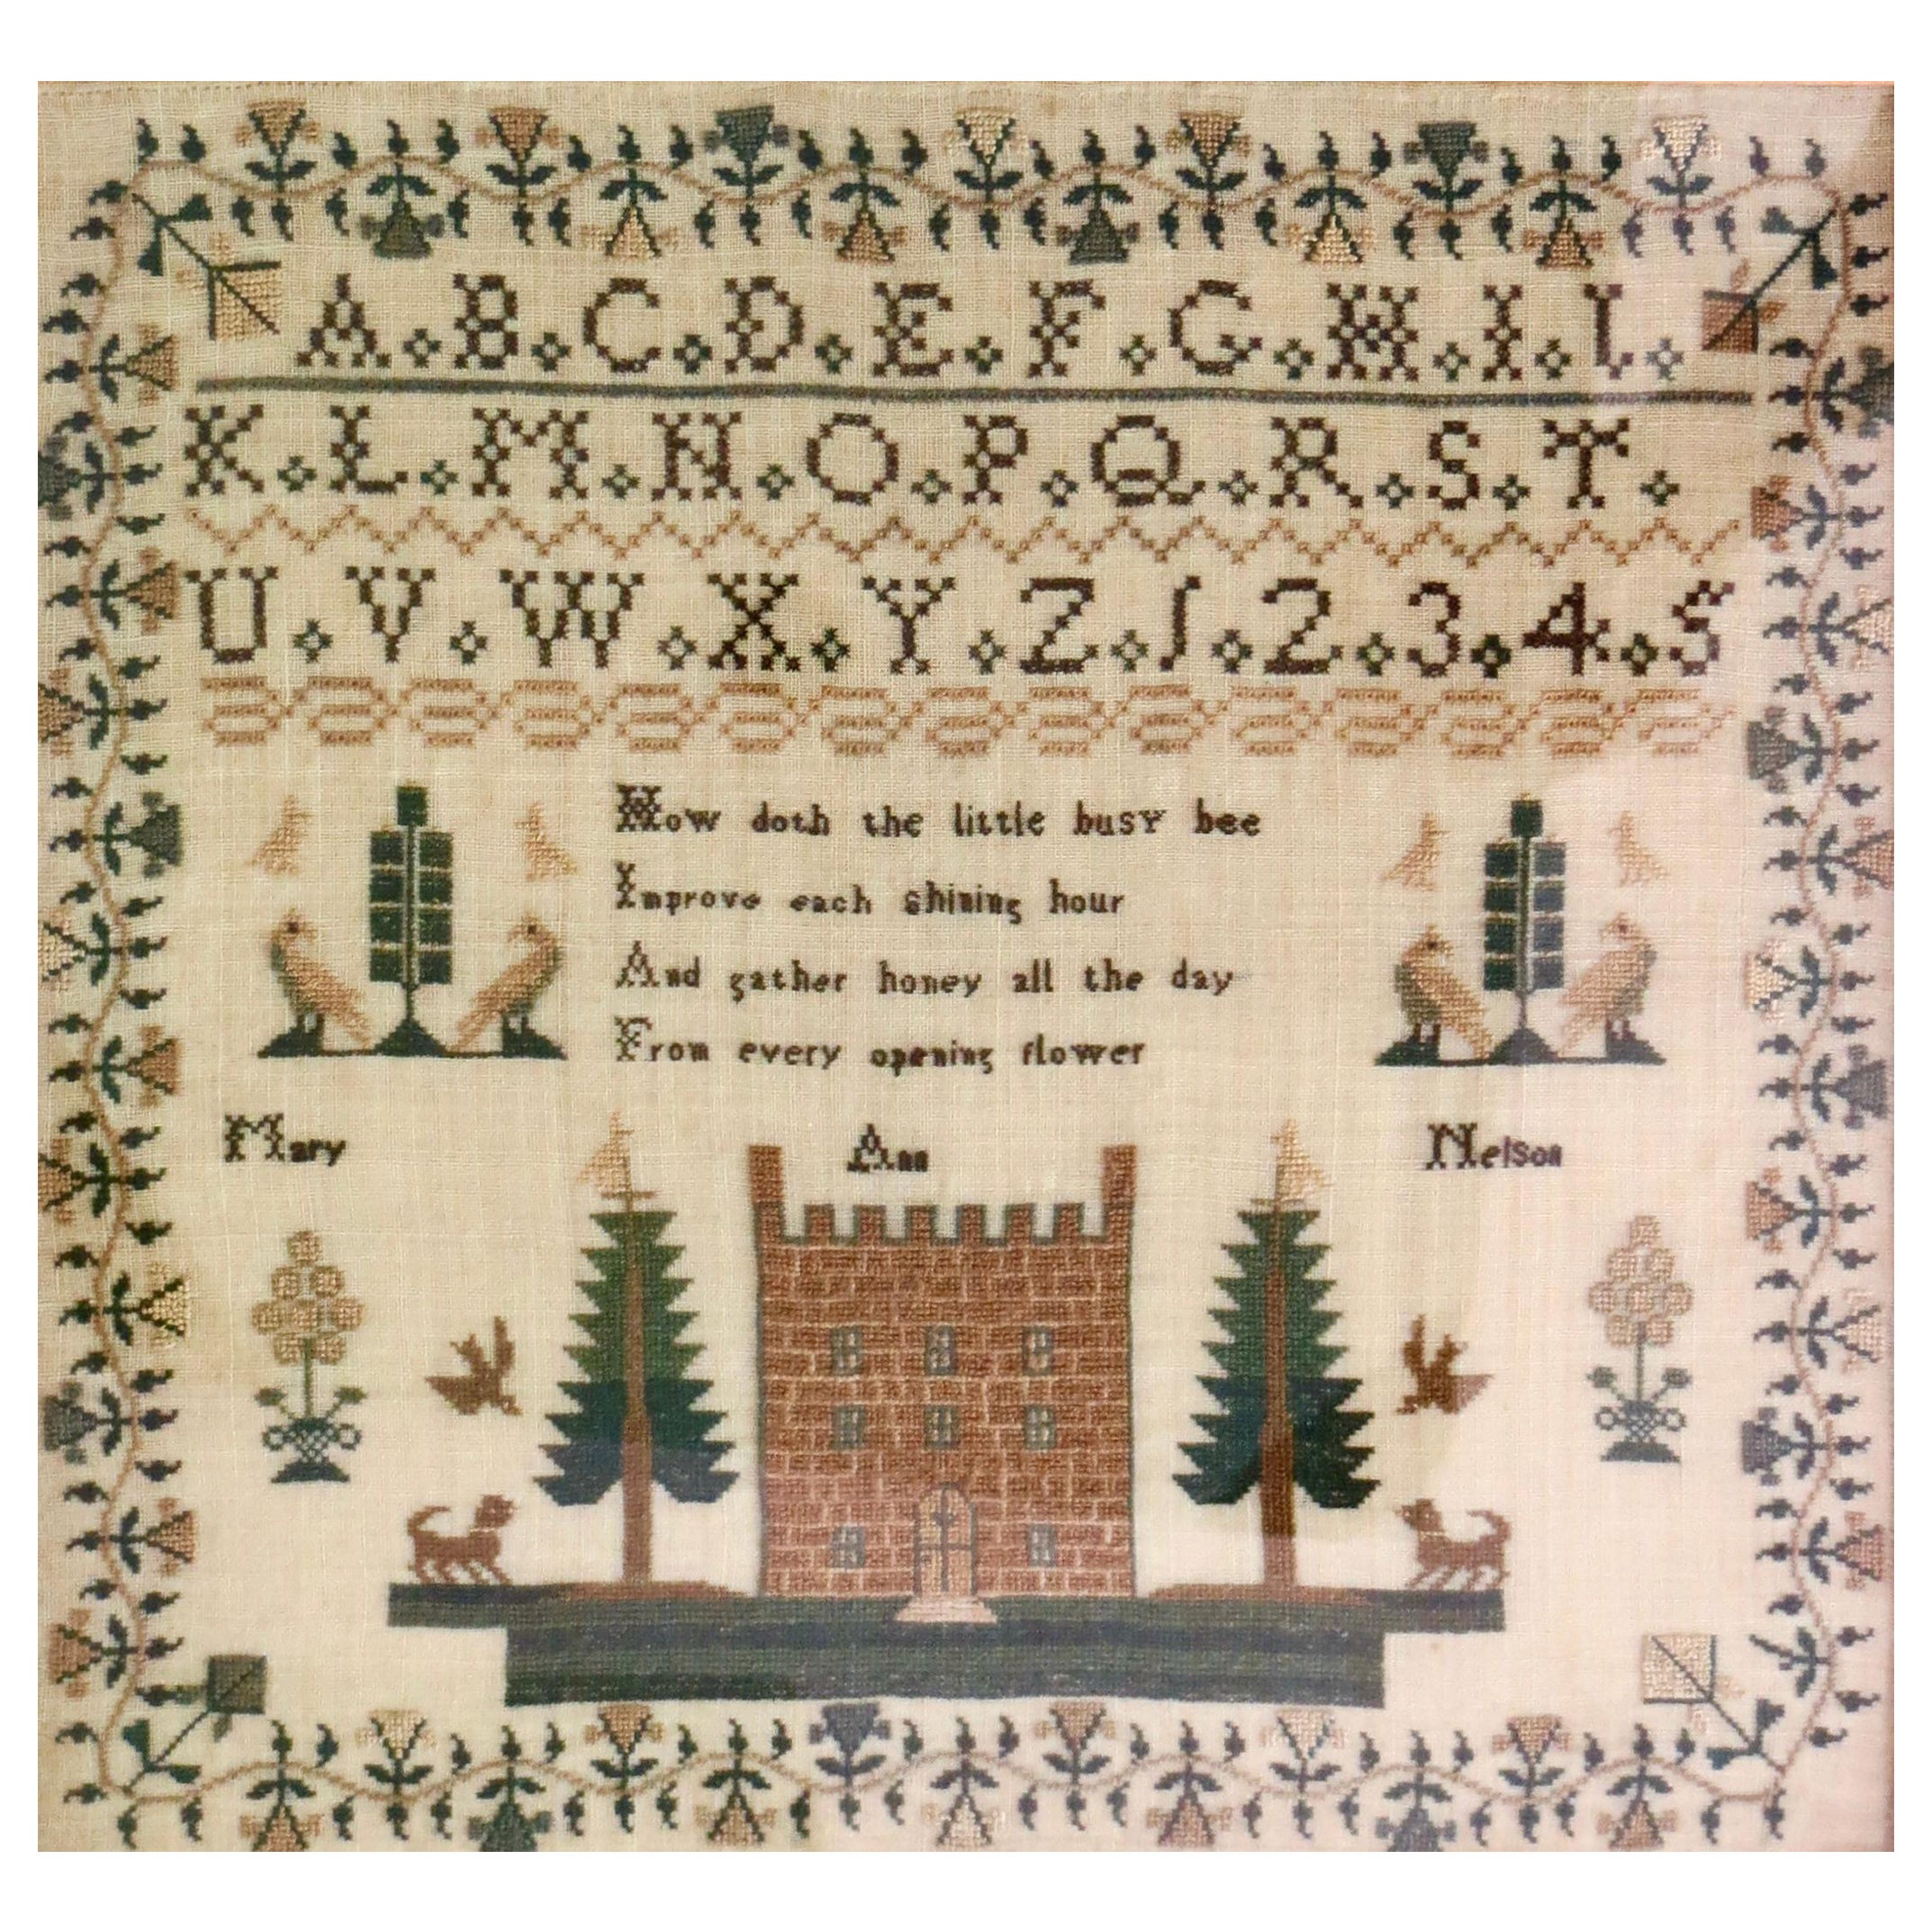 A . B . C . D . E . F . G . H . I . J .
K . L . M . N . O . P . Q . R . S . T .
U . V . W . X . Y . Z . 1 . 2 . 3 . 4 . 5
How doth the little busy bee
Improve each shining hour
And gather honey all the day
From every opening flower
Mary Ann Nelson